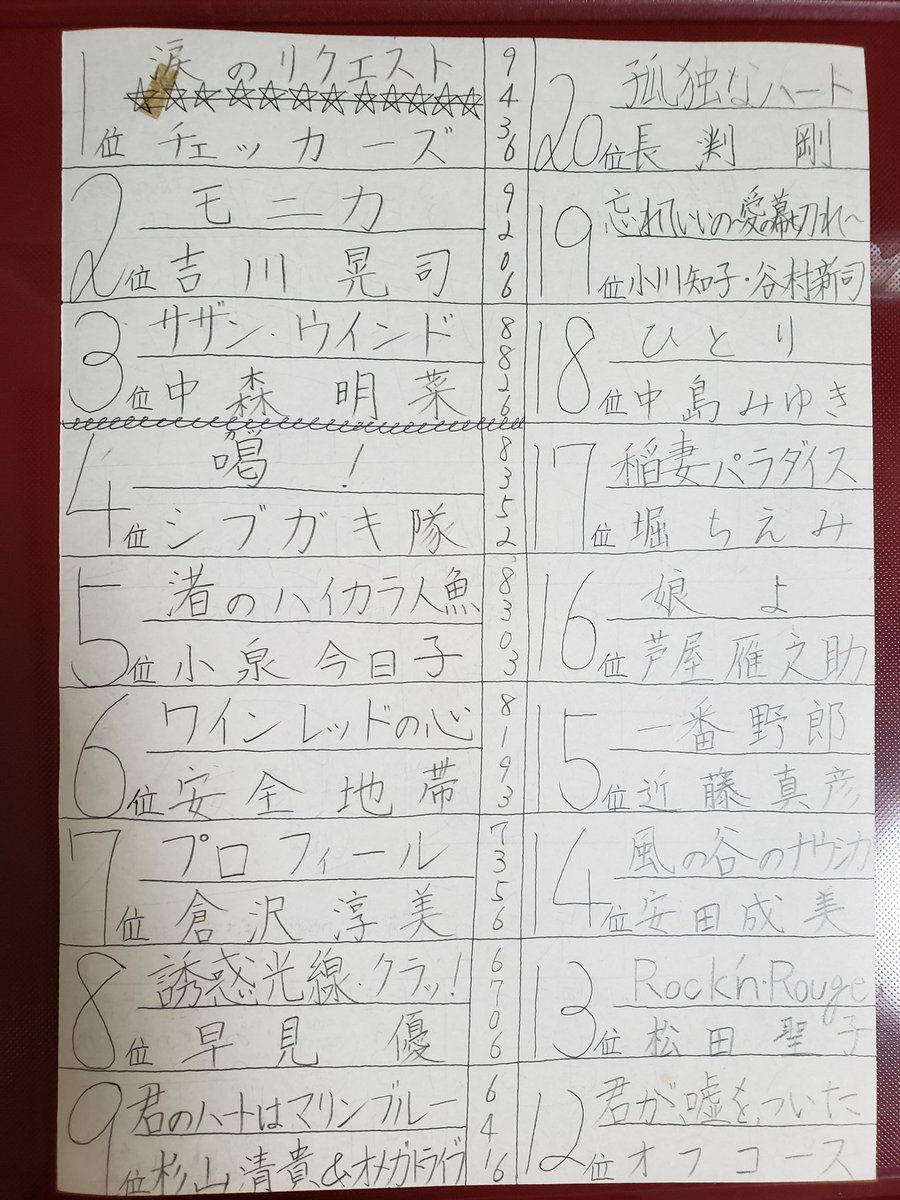 1位
涙のリクエスト
☆☆☆☆☆☆☆☆☆☆☆
チェッカーズ
9436
2位
モニカ
吉川晃司
9206
3位
サザン・ウインド
中森明菜
8826
4位
喝!
シブガキ隊
8352
5位
渚のハイカラ人魚
小泉今日子
8303
6位
ワインレッドの心
安全地帯
8193
7位
プロフィール
倉沢淳美
7356
8位
誘惑光線・クラッ!
早見優
6706
9位
君のハートはマリンブルー
杉山清貴&オメガトライブ
6416
20位
孤独なハート
長渕剛
19位
忘れていいの〜愛の幕切れ〜
小川知子・谷村新司
18位
ひとり
中島みゆき
17位
稲妻パラダイス
堀ちえみ
16位
娘よ
芦屋雁之助
15位
一番野郎
近藤真彦
14位
風の谷のナウシカ
安田成美
13位
Rock'n・Rouge
松田聖子
12位
君が、嘘を、ついた
オフコース